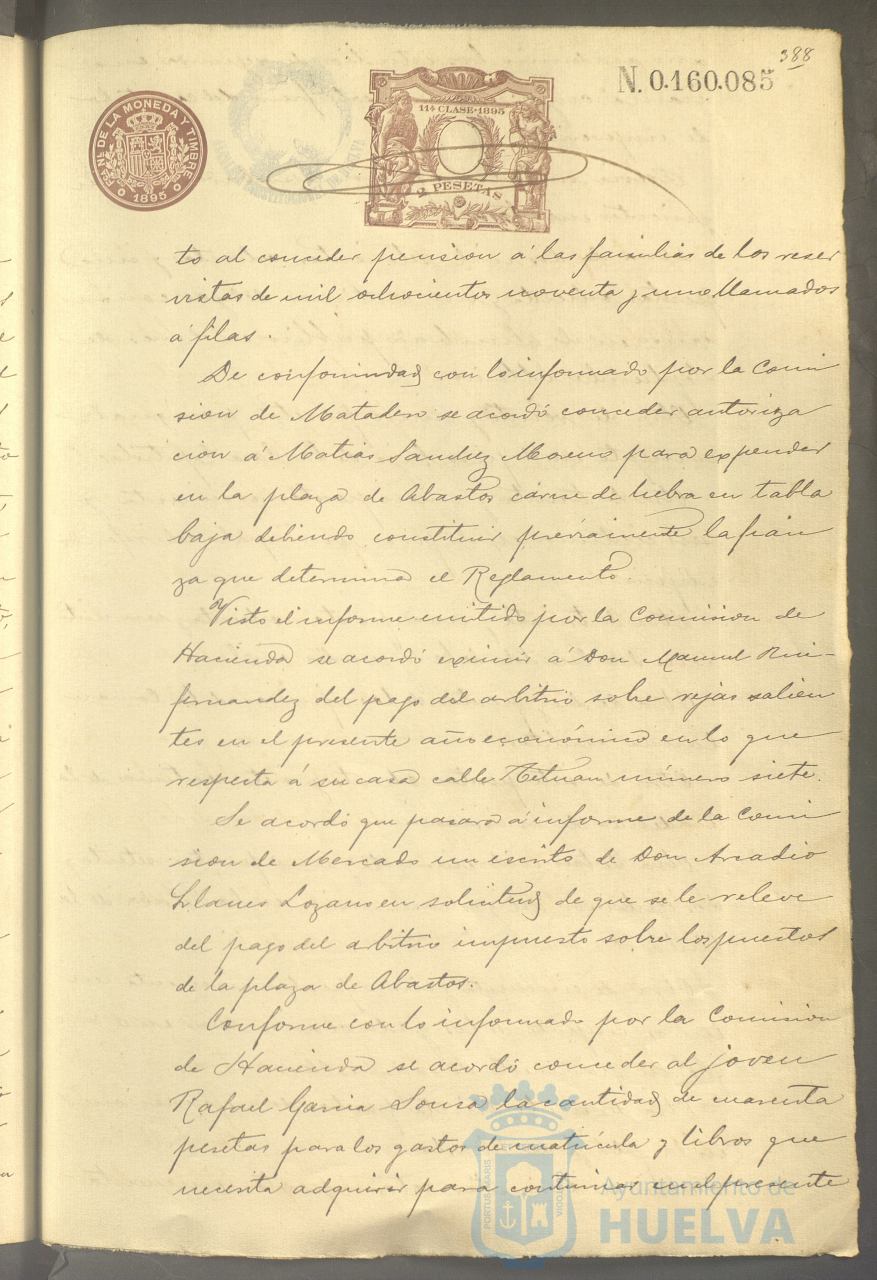 388
N. 0.160.085
FCA. NL. DE LA MONEDA Y TIMBRE
1895
11ª CLASE-1895
2 PESETAS
to al conceder pension á las familias de los reser
vistas de mil ochocientos noventa y uno llamados
á filas.
De conformidad con lo informado por la Comi
sion de Matadero se acordó conceder autoriza
cion á Matias Sanchez Moreno para expender
en la plaza de Abastos carne de hebra en tabla
baja debiendo constituir previamente la fian
za que determina el Reglamento.
Visto el informe emitido por la Comision de
Hacienda se acordó eximir á Don Manuel Rui-
fernandez del pago del arbitrio sobre rejas salien
tes en el presente año económico en lo que
respecta á su casa calle Tetuan número siete.
Se acordó que pasara á informe de la Comi
sion de Mercado un escrito de Don Arcadio
Llanes Lozano en solicitud de que se le releve
del pago del arbitrio impuesto sobre los puestos
de la plaza de Abastos.
Conforme con lo informado por la Comision
de Hacienda se acordó conceder al joven
Rafael Garcia Sousa la cantidad de cuarenta
pesetas para los gastos de matrícula y libros que
necesita adquirir para continuar en el presente
Ayuntamiento de
HUELVA